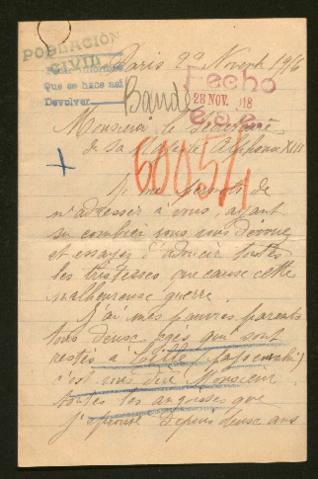 POBLACIÓN
CIVIL
Paris 22 Novbre 1916
Que se hace así
Devolver
Fecho
28 NOV. 918
Bande
Monsieur le Secrétaire
de sa Majesté Alphonse XIII
Je me permets de
m'adresser à vous, ayant
su combien vous vous
et essayez d'adoucir toutes
les tristesses que cause cette
malheureuse guerre.
J'ai mes pauvres parents
tous deux agés qui sont
restés à Lille (pays envahi)
c'est vous dire Monsieur
toutes les angoisses que
j'éprouve depuis deux ans